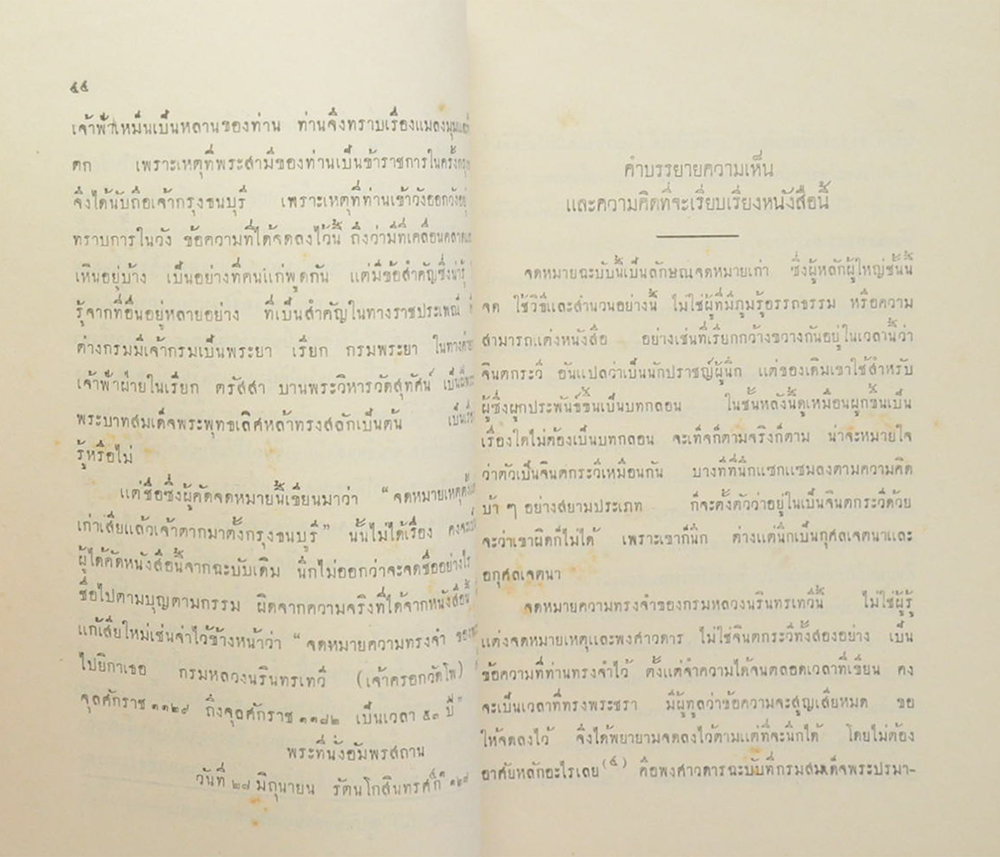 ๕๔
เจ้าฟ้าเหม็นเป็นหลานของท่าน ท่านจึงทราบเรื่องแมลงมุม
ตก เพราะเหตุที่พระสามีของท่านเป็นข้าราชการในครั้งกรุง
จึงได้นับถือเจ้ากรุงธนบุรี เพราะเหตุที่ท่านเข้าวังออกวังอยู่
ทราบการในวัง ข้อความที่ได้จดลงไว้นี้ ถึงว่ามีที่เคลื่อนคลาด
เหินอยู่บ้าง เป็นอย่างที่คนแก่พูดกัน แต่มีข้อสำคัญซึ่งน่ารู้
รู้จากที่อื่นอยู่หลายอย่าง ที่เป็นสำคัญในทางราชประเพณี
ต่างกรมมีเจ้ากรมเป็นพระยา เรียก กรมพระยา ในทาง
เจ้าฟ้าฝ่ายในเรียก ตรัสสา บานพระวิหารวัดสุทัศน์ เป็น
พระบาทสมเด็จพระพุทธเลิศหล้าทรงสลักเป็นต้น เป็น
รู้หรือไม่
แต่ชื่อซึ่งผู้คัดจดหมายนี้เขียนมาว่า “จดหมายเหตุ
เก่าเสียแล้วเจ้าตากมาตั้งกรุงธนบุรี” นั้นไม่ได้เรื่อง คงจะ
ผู้ได้คัดหนังสือนี้จากฉะบับเดิม นึกไม่ออกว่าจะจดชื่ออย่างไร
ชื่อไปตามบุญตามกรรม ผิดจากความจริงที่ได้จากหนังสือนี้
แก้เสียใหม่เช่นจ่าไว้ข้างหน้าว่า “จดหมายความทรงจำ ของ
ไปยิกาเธอ กรมหลวงนรินทรเทวี (เจ้าครอกวัดโพ)
จุลศักราช ๑๑๒๙ ถึงจุลศักราช ๑๑๘๒ เป็นเวลา ๕๓ ปี”
พระที่นั่งอัมพรสถาน
วันที่ ๒๗ มิถุนายน รัตนโกสินทรศก ๑๒๗
คำบรรยายความเห็น
และความคิดที่จะเรียบเรียงหนังสือนี้
จดหมายฉะบับนี้เป็นลักษณจดหมายเก่า ซึ่งผู้หลักผู้ใหญ่ชั้นนี้
จด ใช้วิธีและสำนวนอย่างนี้ ไม่ใช่ผู้ที่มีภูมรู้อรรถธรรม หรือความ
สามารถแต่งหนังสือ อย่างเช่นที่เรียกกว้างขวางกันอยู่ในเวลานี้ว่า
จินตกระวี อันแปลว่าเป็นนักปราชญ์ผู้นึก แต่ของเดิมเขาใช้สำหรับ
ผู้ซึ่งผูกประพันธ์ขึ้นเป็นบทกลอน ในชั้นหลังนี้ดูเหมือนผูกขึ้นเป็น
เรื่องใดไม่ต้องเป็นบทกลอน จะเท็จก็ตามจริงก็ตาม น่าจะหมายใจ
ว่าตัวเป็นจินตกระวีเหมือนกัน บางทีที่นึกแซกแซมลงตามความคิด
บ้า ๆ อย่างสยามประเภท ก็จะตั้งตัวว่าอยู่ในเป็นจินตกระวีด้วย
จะว่าเขาผิดก็ไม่ได้ เพราะเขาก็นึก ต่างแต่นึกเป็นกุศลเจตนาและ
อกุศลเจตนา
จดหมายความทรงจำของกรมหลวงนรินทรเทวีนี้ ไม่ใช่ผู้รู้
แต่งจดหมายเหตุและพงศาวดาร ไม่ใช่จินตกระวีทั้งสองอย่าง เป็น
ข้อความที่ท่านทรงจำไว้ ตั้งแต่จำความได้จนตลอดเวลาที่เขียน คง
จะเป็นเวลาที่ทรงพระชรา มีผู้ทูลว่าข้อความจะสูญเสียหมด ขอ
ให้จดลงไว้ จึงได้พยายามจดลงไว้ตามแต่ที่จะนึกได้ โดยไม่ต้อง
อาศัยหลักอะไรเลย(๕) คือพงศาวดารฉะบับที่กรมสมเด็จพระปรมา-